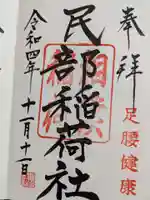 奉拝
足腰健康
民部稲荷社
令和四年
十一月十一日